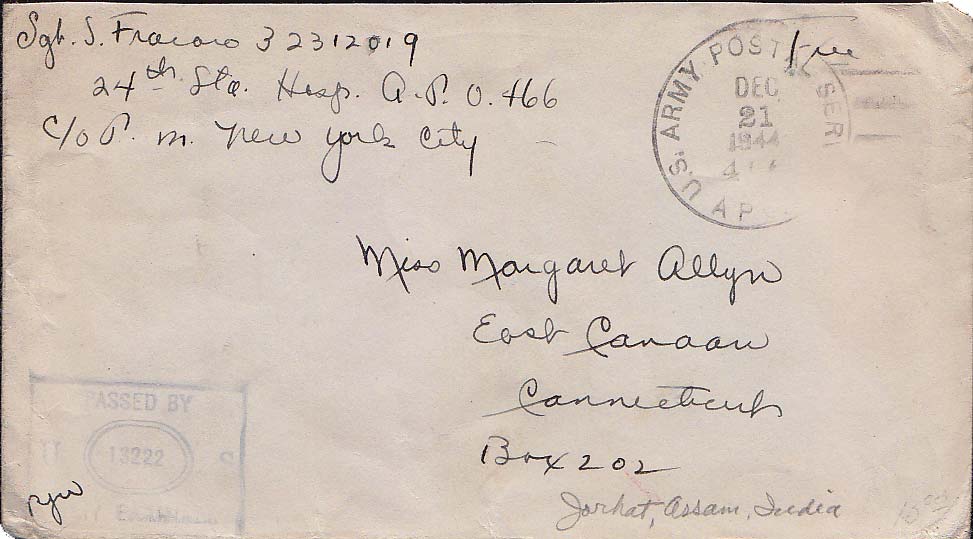 Sgt. S. Fracaro 32312019
24th Sta. Hosp. A.P.O. 466
C/O P.M. New York City
Free
U.S. ARMY POSTAL SER
DEC
21
1944
AP
Miss Margaret Allyn
East Canaan
Connecticut
Box 202
PASSED BY
13222 S
Jorhat, Assam, India